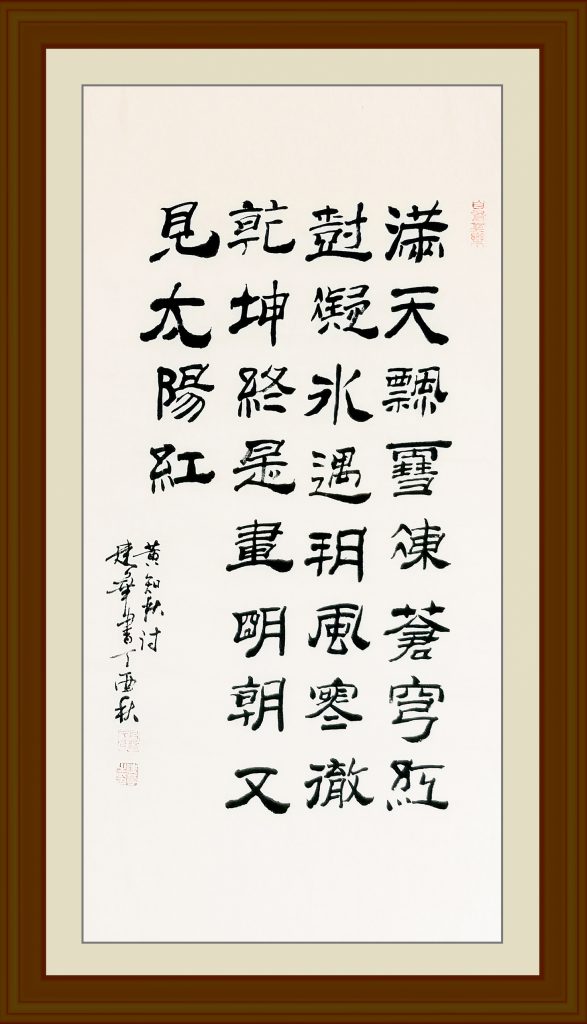 滿天飄雪凍蒼穹紅
尌凝氷遇朔風寒徹
乾坤終是畫明朝又
見太陽紅
黄知秋詩
建華書丁酉秋